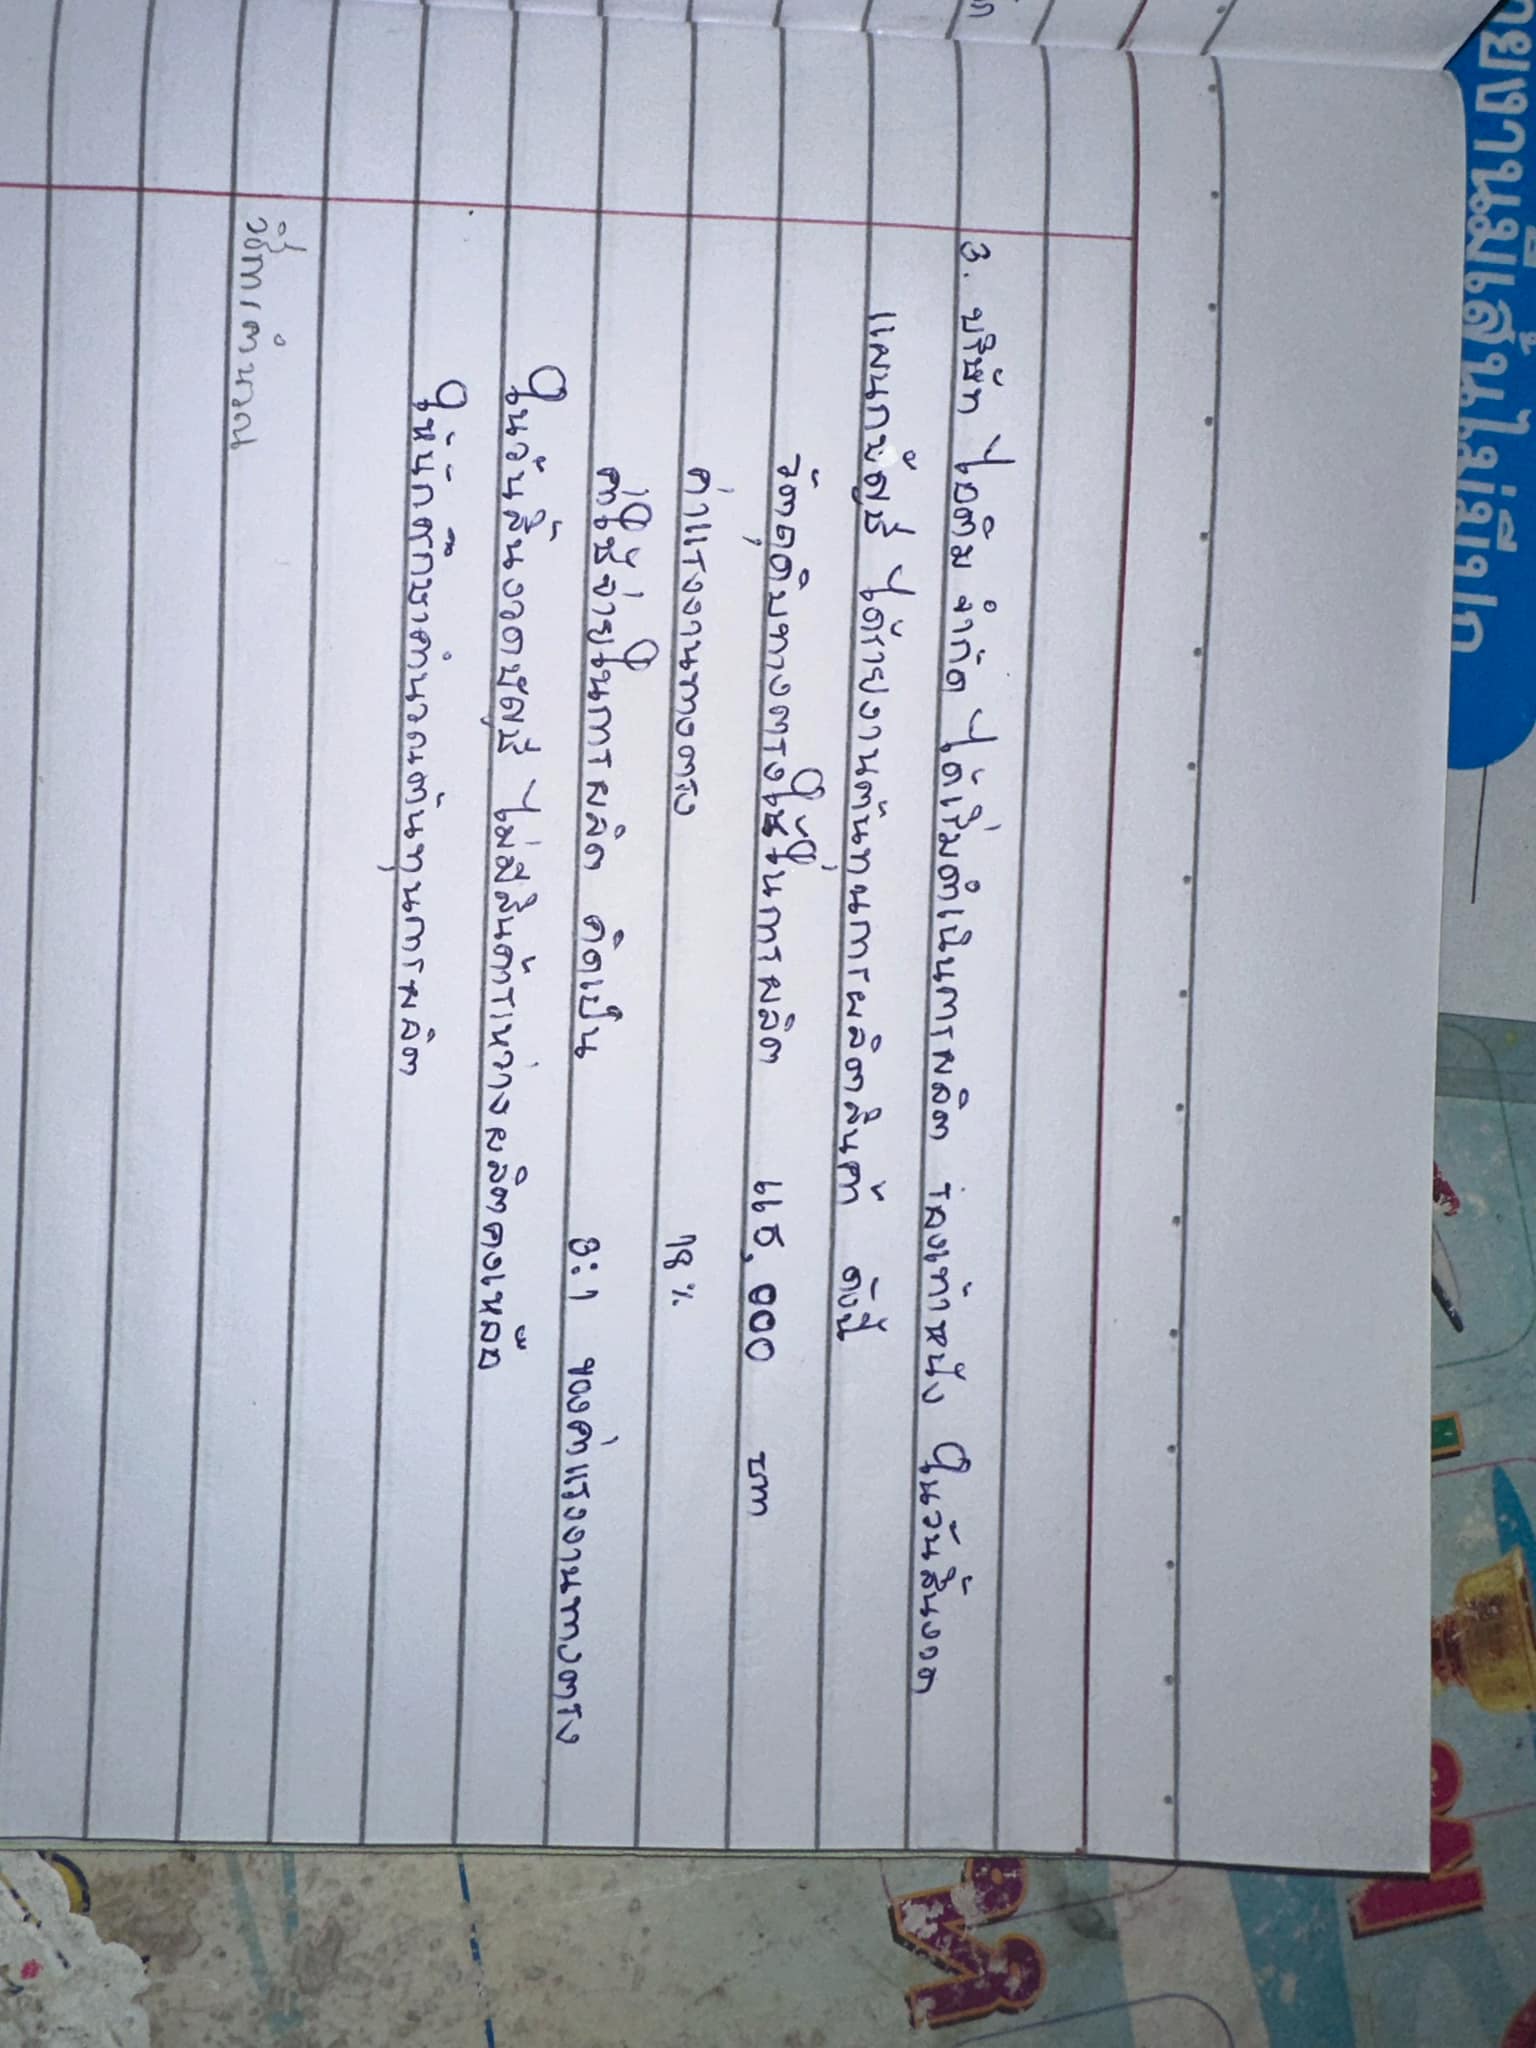 ายงานมีเส้นไม่มีปก
3. บริษัท ไอติม จำกัด ได้เริ่มดำเนินการผลิต รองเท้าหนัง ในวันสิ้นงวด
แผนกบัญชี ได้รายงานต้นทุนการผลิตสินค้า ดังนี้
วัตถุดิบทางตรงใช้ในการผลิต 45,000 บาท
ค่าแรงงานทางตรง 18%
ค่าใช้จ่ายในการผลิต คิดเป็น 3:1 ของค่าแรงงานทางตรง
ในวันสิ้นงวดบัญชี ไม่มีสินค้าระหว่างผลิตคงเหลือ
ให้นักศึกษาคำนวณต้นทุนการผลิต
วิธีการคำนวณ